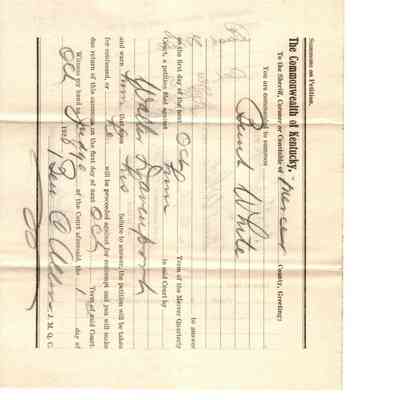 Summons on Petition.
The Commonwealth of Kentucky,
To the Sheriff, Coroner or Constable of Mercer County, Greeting:
You are commanded to summon
Bent White
to answer
on the first day of the next Oct Term of the Mercer Quarterly
Court, a petition filed against him in said Court by
Walter Davenport
and warn him that upon his failure to answer, the petition will be taken
for confessed, or he will be proceeded against for contempt and you will make
due return of this summons, on the first day of next Oct Term of said Court.
Witness my hand as Judge of the Court aforesaid, the 1 day of
Oct 192
J. M. Q. C.